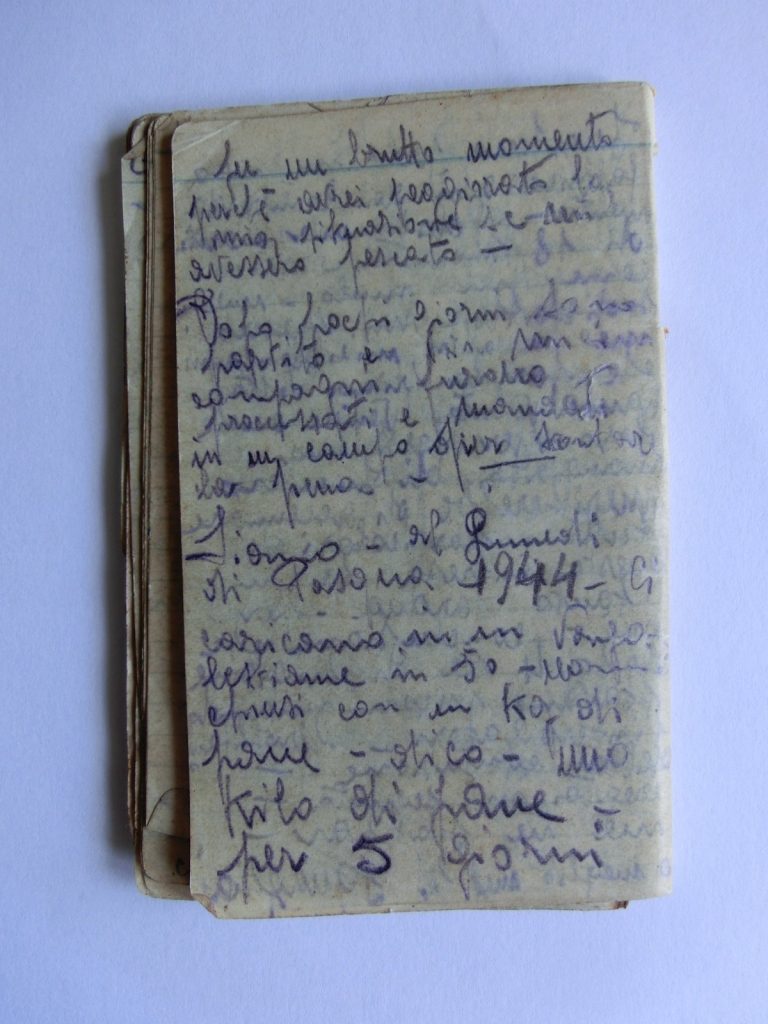 fu un brutto momento
perchè avrei peggiorato la
mia situazione se mi
avessero pescato –
Dopo pochi giorni sono
partito e gli miei
compagni furono
processati e mandati
in un campo per scontar
la pena –
Siamo – al Lunedi
di Pasqua 1944 – Ci
caricano in un Vago-
bestiame in 50 – uomini
chiusi con un Kg. di
pane – dico – uno
Kilo di pane –
per 5 giorni